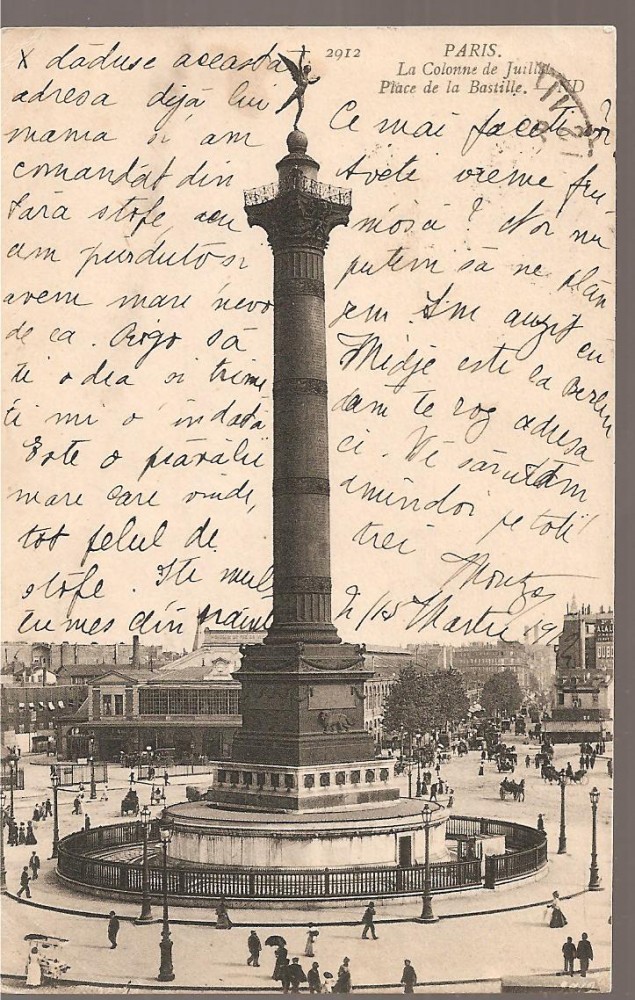 2912
PARIS.
La Colonne de Juillet
Place de la Bastille. ND
X dăduse aceasta
adresa dejà lui
mama si am
comandat din
țară stofe, am
am purduto si
avem mare nevo
de ea. Rogo să
ti o dea si trime
ti mi o îndată
Este o prăvălie
mare care vinde,
tot felul de
stofe. Ite mul
tumes din
Ce mai faceti
Aveti vreme fru
mósă? Noi nu
putem să ne plân
gem. Am auzit cu
Midje este la Berlin
dami te rog adresa
ei. Vĕ sărutăm
amîndoi pe toti
trei
2/15 Martie 19